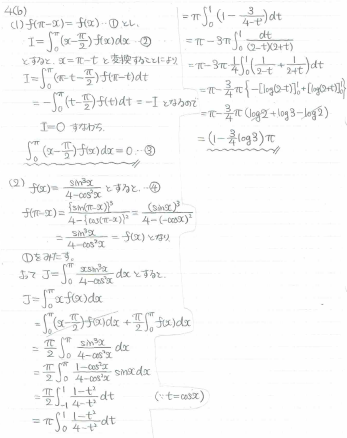 4(b)
(1) f(π-x)=f(x)…① とし、
I=∫₀^π (x-π/2)f(x)dx …②
とすると、x=π-t と変換することにより
I=∫₀^π (π-t-π/2)f(π-t)dt
=-∫₀^π (t-π/2)f(t)dt=-I となるので
I=0 すなわち
∫₀^π (x-π/2)f(x)dx=0 …③
(2) f(x)=sin³x/(4-cos²x) とすると…④
f(π-x)={sin(π-x)}³/(4-{cos(π-x)}²)=(sinx)³/(4-(-cosx)²)
=sin³x/(4-cos²x)=f(x) となり
①をみたす。
よって J=∫₀^π xsin³x/(4-cos²x) dx とすると、
J=∫₀^π xf(x)dx
=∫₀^π (x-π/2)f(x)dx+π/2∫₀^π f(x)dx
=π/2∫₀^π sin³x/(4-cos²x) dx
=π/2∫₀^π (1-cos²x)/(4-cos²x) sinx dx
=π/2∫₋₁^1 (1-t²)/(4-t²) dt (∵t=cosx)
=π∫₀^1 (1-t²)/(4-t²) dt
=π∫₀^1 (1-3/(4-t²))dt
=π-3π∫₀^1 dt/((2-t)(2+t))
=π-3π·1/4∫₀^1 (1/(2-t)+1/(2+t))dt
=π-3/4π{-[log(2-t)]₀^1+[log(2+t)]₀^1}
=π-3/4π(log2+log3-log2)
=(1-3/4log3)π